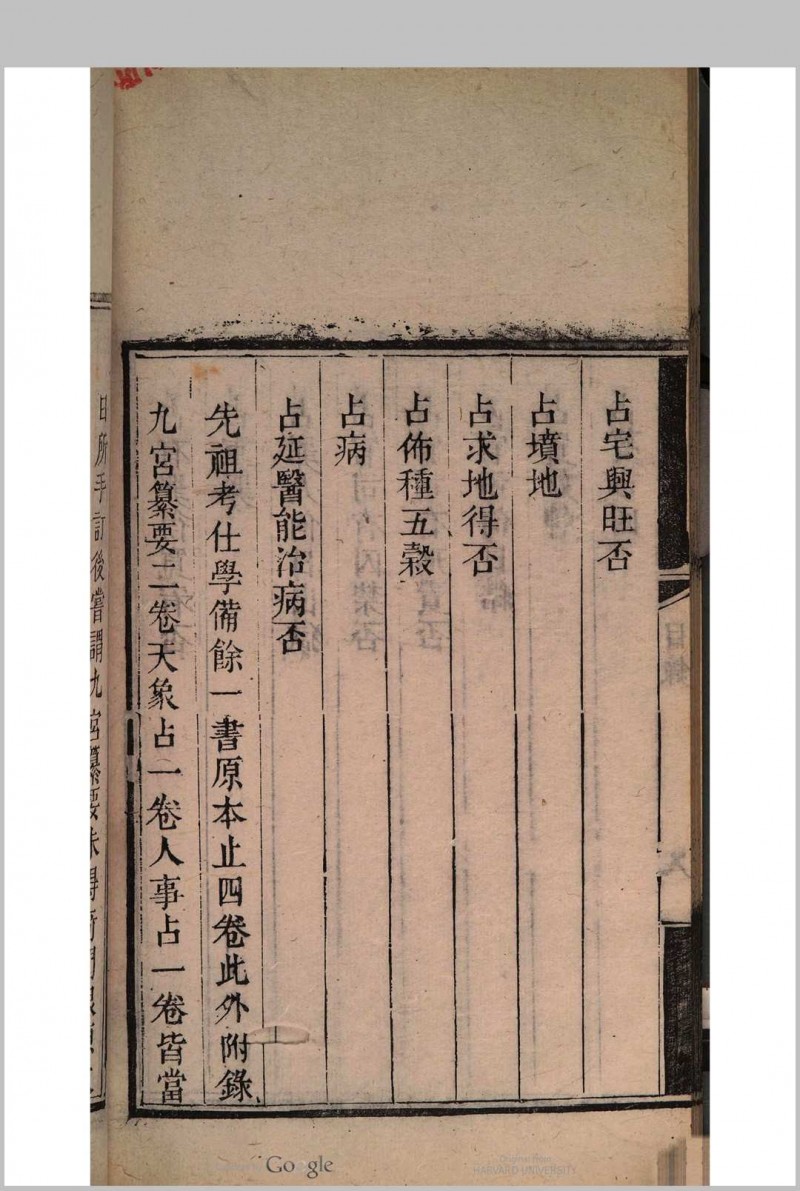 占宅興旺否
占墳地
占求地得否
占佈種五穀
占病
占延醫能治病否
先祖考仕學備餘一書原本止四卷此外附錄
九宮纂要二卷天象占一卷人事占一卷皆當
日所手訂後嘗謂九宮纂要未得
目錄
Google
Original from
HARVARD UNIVERSITY